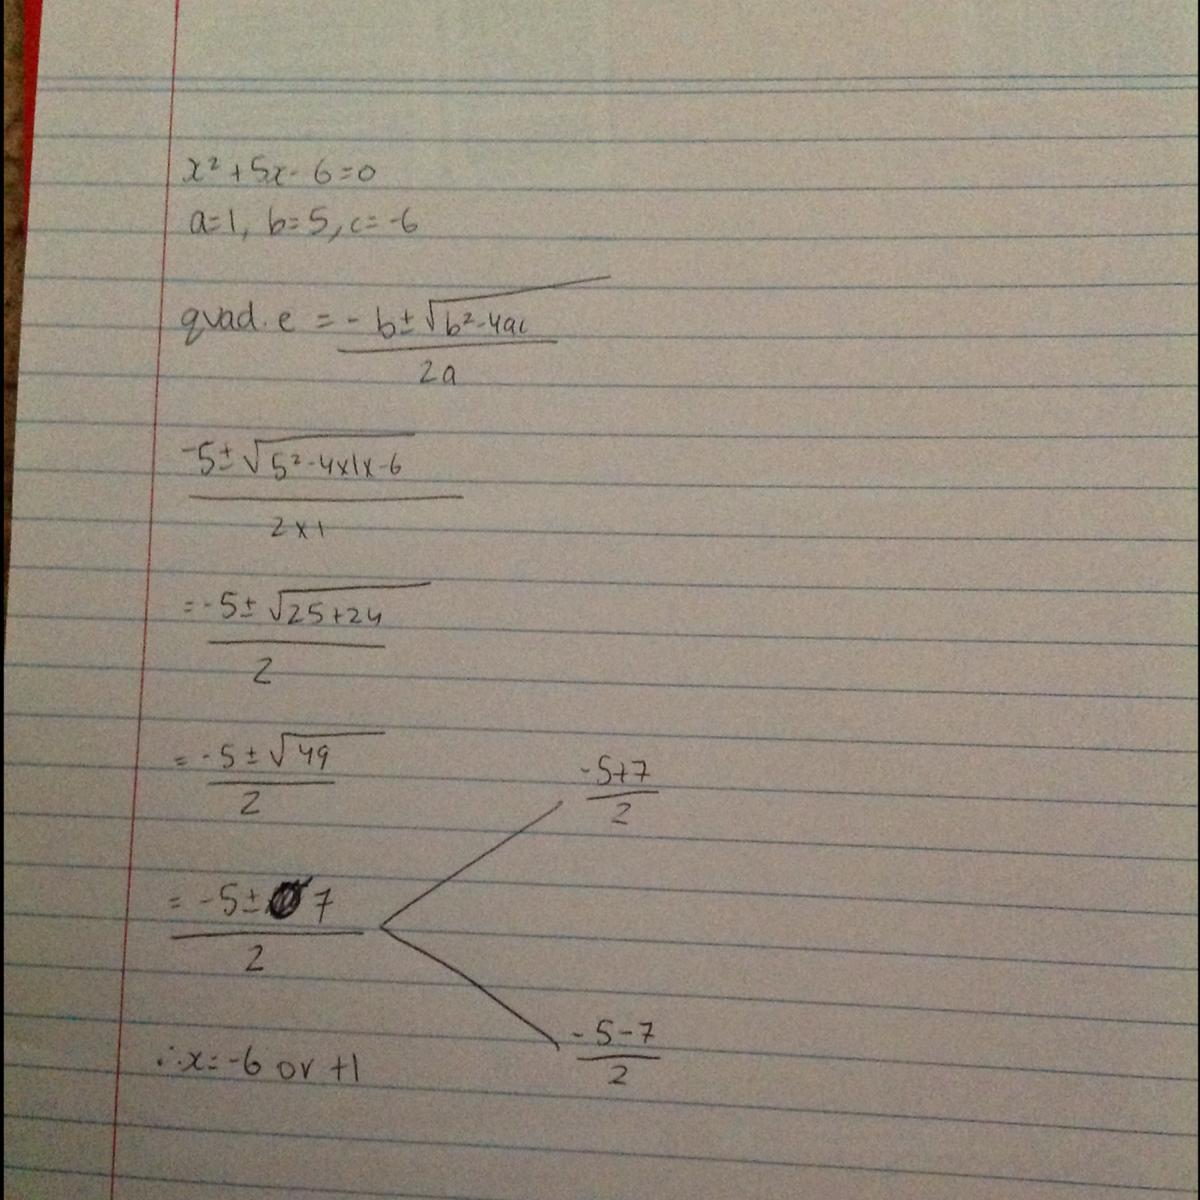 x² + 5x - 6 = 0
a=1, b=5, c=-6
quad. e = - b ± √b²-4ac
2a
-5 ± √5²-4x1x-6
2 x 1
= -5 ± √25+24
2
= -5 ± √49
2
-5+7
2
= -5 ± 7
2
-5-7
2
∴ x = -6 or +1